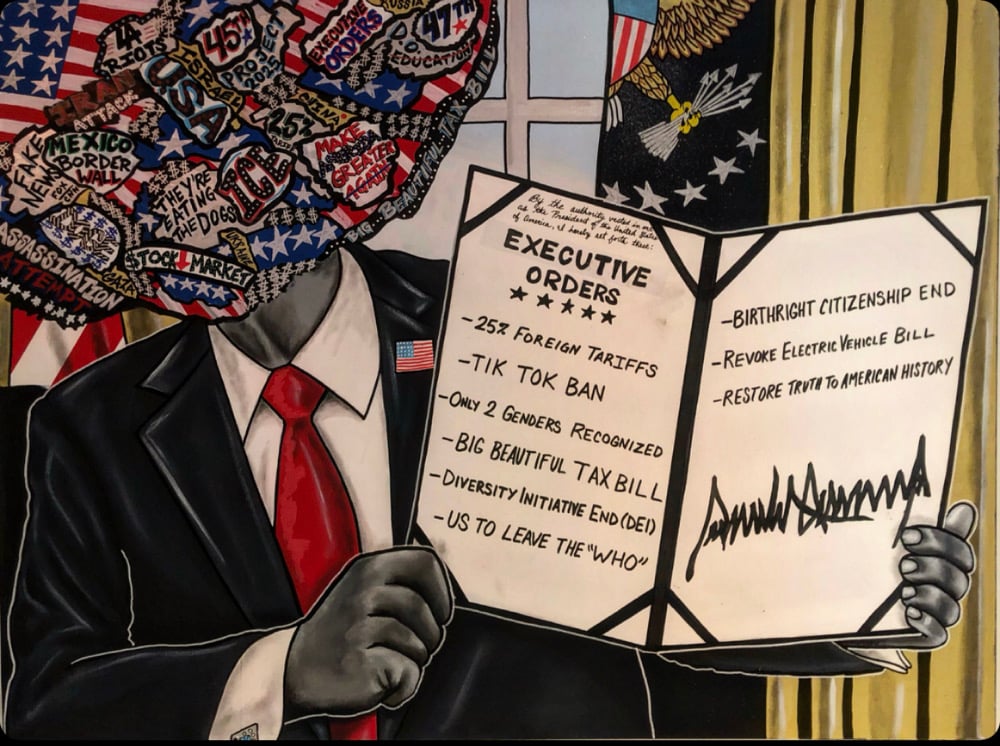 LA
RIOTS
45TH
PROJECT
2025
EXECUTIVE
ORDERS
RUSSIA
47TH
D.O.
EDUCATION
IRAN
ATTACK
USA
CHINA
25%
FAKE
NEWS
MEXICO
BORDER
WALL
THEY'RE
EATING
THE DOGS
ICE
MAKE
GREATER
AGAIN
BIG BEAUTIFUL TAX BILL
GAZA
STOCK MARKET
ASSASSINATION
ATTEMPT
By the authority vested in me
as the President of the United States
of America, I hereby set forth these:
EXECUTIVE
ORDERS
-25% FOREIGN TARIFFS
-TIK TOK BAN
-ONLY 2 GENDERS RECOGNIZED
-BIG BEAUTIFUL TAX BILL
-DIVERSITY INITIATIVE END (DEI)
-US TO LEAVE THE "WHO"
-BIRTHRIGHT CITIZENSHIP END
-REVOKE ELECTRIC VEHICLE BILL
-RESTORE TRUTH TO AMERICAN HISTORY